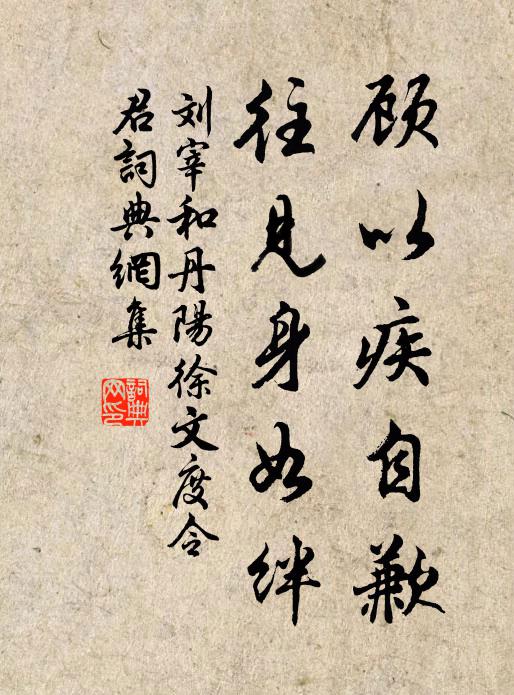 顾以疾自歉
往见身如绊
刘宰和丹陽徐文度令
君詞典網集
詞典
网印